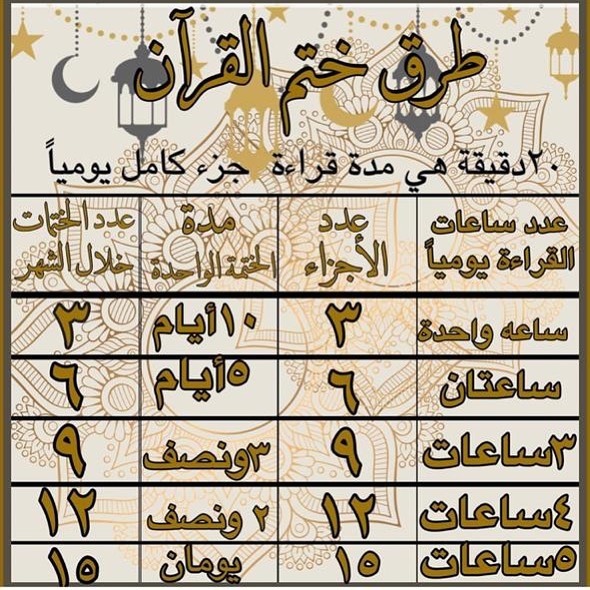 طرق ختم القرآن
٢٠دقيقة هي مدة قراءة جزء كامل يومياً
عدد ساعات القراءة يومياً | عدد الأجزاء | مدة الختمة الواحدة | عدد الختمات خلال الشهر
ساعه واحدة | ٣ | ١٠أيام | ٣
ساعتان | ٦ | ٥أيام | ٦
٣ساعات | ٩ | ٣ونصف | ٩
٤ساعات | ١٢ | ٢ ونصف | ١٢
٥ساعات | ١٥ | يومان | ١٥